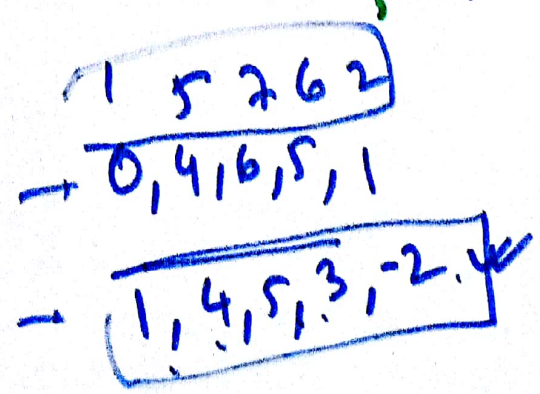 1 5 7 6 2
→ 0, 4, 6, 5, 1
- 1, 4, 5, 3, -2.